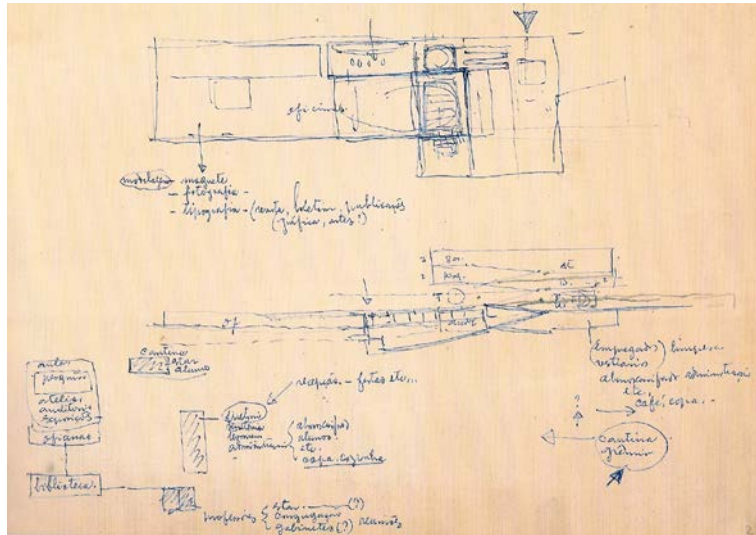 oficinas
modelagem - maquete
- fotografia -
- tipografia - (revista, boletim, publicações
(gráfica, artes!)
of
cantina
estar
aluno
aulas
pesquisa
atelier
auditório
exposições
oficinas
biblioteca.
recepção. - festas etc...
administração
almoxarifado
alunos
etc.
copa. cozinha
professores
estar (?)
congregação
gabinetes (?) reuniões
empregados limpeza
vestiário
almoxarifado administração
etc.
café, copa. -
cantina
grêmio